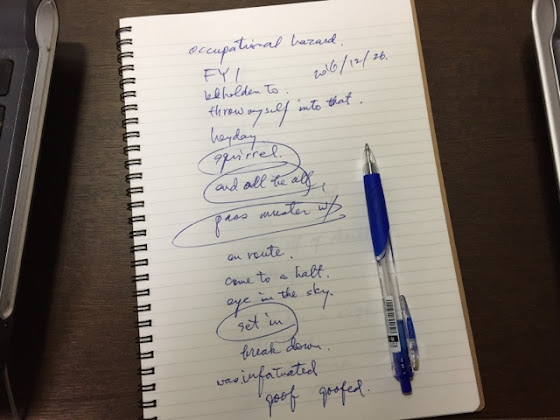 occupational hazard.
FYI 2016/12/26.
beholden to.
throw myself into that.
heyday
squirrel.
and all be all,
pass muster w/
en route.
come to a halt.
eye in the sky.
set in
break down.
was infatuated
goof goofed.